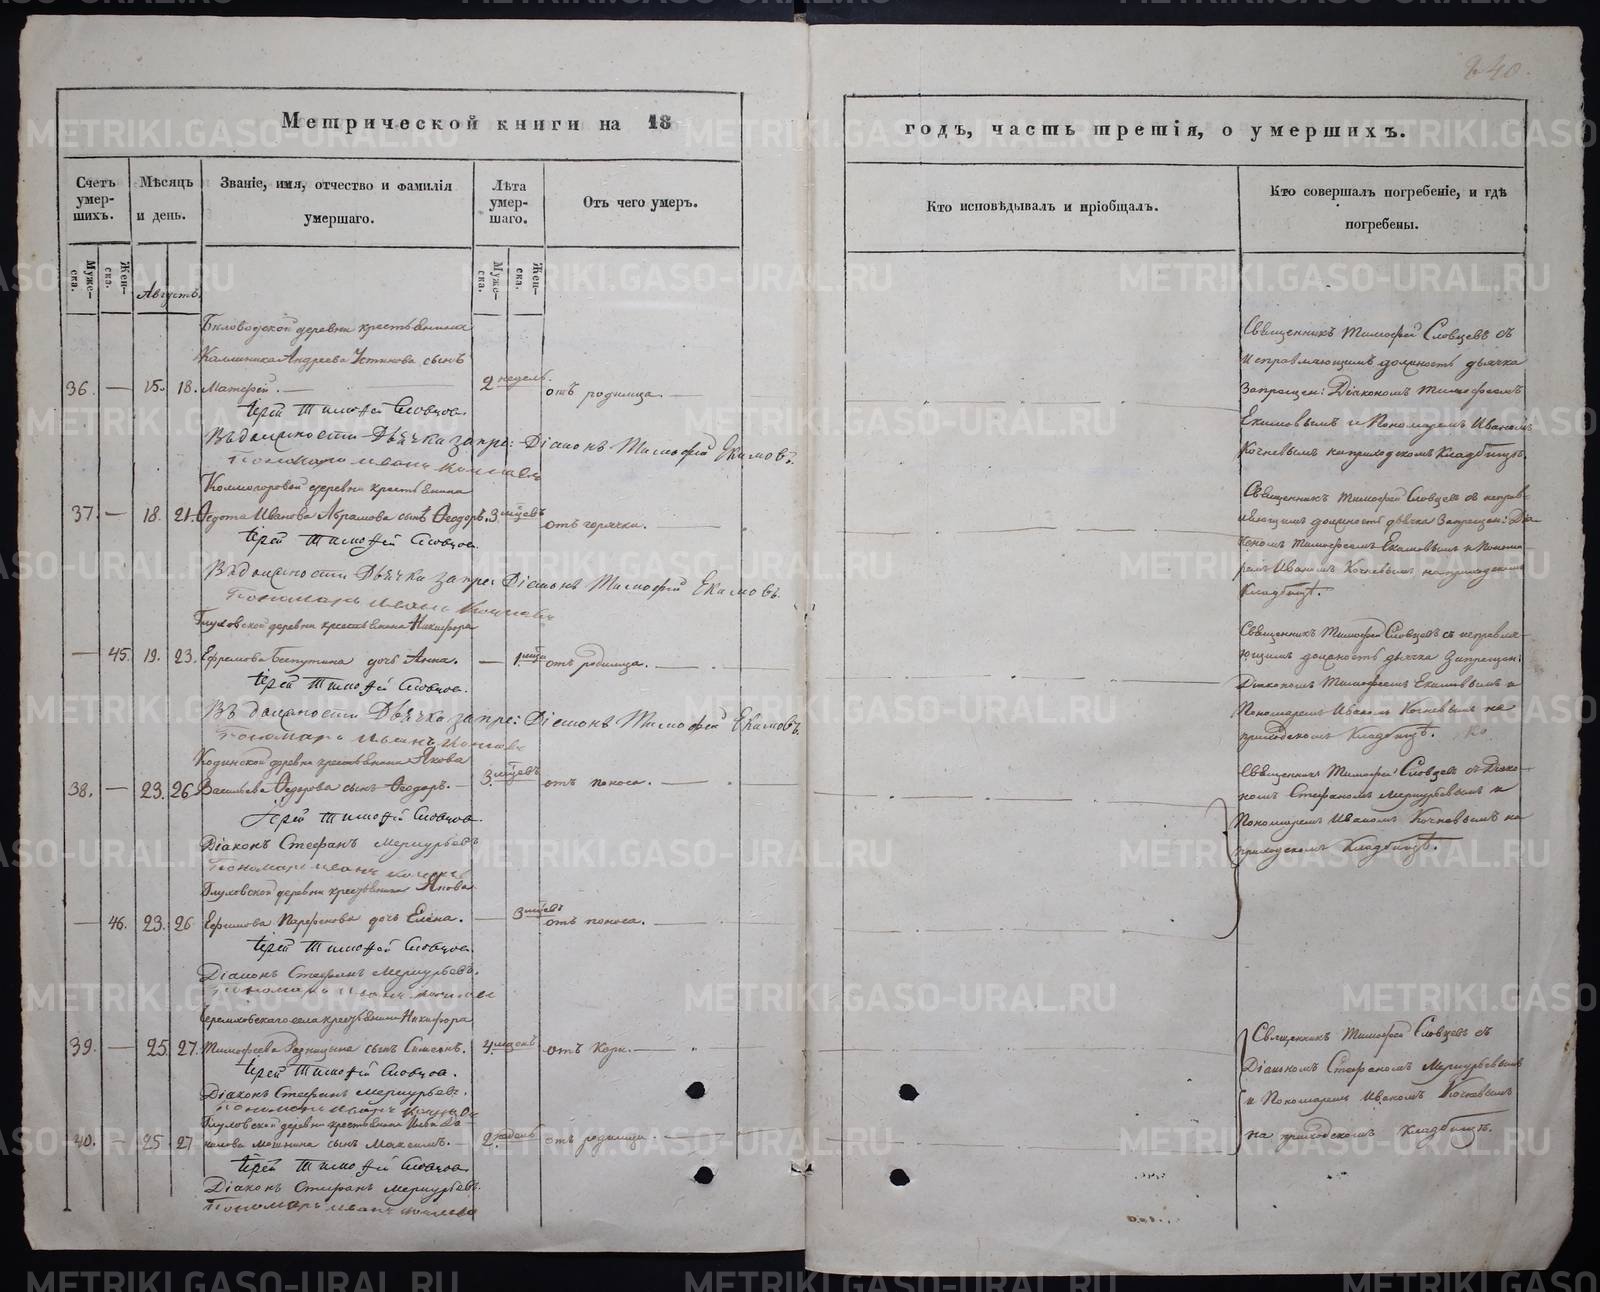 240.
Метрической книги на 18
годъ, часть третія, о умершихъ.
Счетъ умер-шихъ.
Мѣсяцъ и день.
Званіе, имя, отчество и фамилія умершаго.
Лѣта умер-шаго.
Отъ чего умеръ.
Кто исповѣдывалъ и пріобщалъ.
Кто совершалъ погребеніе, и гдѣ погребены.
Муже-ска.
Жен-ска.
Августъ.
Муже-ска.
Жен-ска.
деревни крестьянина
Калинника Андреева Устинова сынъ
36. — 15. 18. Матфей. — 2 недель. отъ родимца.
Іерей Тимофей Словцов.
Въ должности Дьячка запре: Діаконъ Тимофей Екимовъ.
Пономарь Иванъ Кочневъ
Священникъ Тимофей Словцевъ съ
исправляющимъ должность дьячка
Запрещен: Діакономъ Тимофеемъ
Екимовымъ и Пономаремъ Иваномъ
Кочневымъ на приходскомъ Кладбищѣ.
деревни крестьянина
37. — 18. 21. Ѳедота Иванова Абрамова сынъ Ѳеодоръ. 3 мцевъ отъ горячки.
Іерей Тимофей Словцов.
Въ должности Дьячка запре: Діаконъ Тимофей Екимовъ.
Пономарь Иванъ Кочневъ
Священникъ Тимофей Словцев съ исправ-
ляющимъ должность дьячка Запрещен: Діа-
кономъ Тимофеемъ Екимовымъ и Понома-
ремъ Иваномъ Кочневымъ на приходскомъ
Кладбищѣ.
Глуховской деревни крестьянина Никифора
— 45. 19. 23. Ефремова дочь Анна. — 1. мца отъ родимца.
Іерей Тимофей Словцов.
Въ должности Дьячка запре: Діаконъ Тимофей Екимовъ.
Пономарь Иванъ Кочневъ
Священникъ Тимофей Словцевъ съ исправля-
ющимъ должность дьячка Запрещен:
Діакономъ Тимофеемъ Екимовымъ и
Пономаремъ Иваномъ Кочневымъ на
приходскомъ Кладбищѣ.
Кодинской деревни крестьянина Якова
38. — 23. 26 Васильева Ѳедорова сынъ Ѳеодоръ. — 3. мцевъ отъ поноса.
Іерей Тимофей Словцов.
Діаконъ Стефанъ Меркурьевъ
Пономарь Иванъ Кочневъ
Священникъ Тимофей Словцевъ съ Діако-
номъ Стефаномъ Меркурьевымъ и
Пономаремъ Иваномъ Кочневымъ на
приходскомъ Кладбищѣ.
Глуховской деревни крестьянина Якова
— 46. 23. 26 Ефимова Парфенова дочь Елена. — 3 мцевъ отъ поноса.
Іерей Тимофей Словцов.
Діаконъ Стефанъ Меркурьевъ.
Пономарь Иванъ Кочневъ
села крестьянина Никифора
39. — 25. 27. Тимофеева сынъ Симеонъ. 4. отъ Кори.
Іерей Тимофей Словцов.
Діаконъ Стефанъ Меркурьевъ.
Пономарь Иванъ Кочневъ
Священникъ Тимофей Словцевъ съ
Діакономъ Стефаномъ Меркурьевымъ
и Пономаремъ Иваномъ Кочневымъ
на приходскомъ Кладбищѣ.
Глуховской деревни крестьянина
40. — 25 27 сынъ Максимъ. — 2. отъ родимца.
Іерей Тимофей Словцов.
Діаконъ Стефанъ Меркурьевъ.
Пономарь Иванъ Кочневъ
METRIKI.GASO-URAL.RU